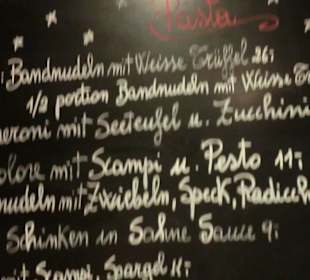 Pasta
Bandnudeln mit Weisse Trüffel 26;
1/2 portion Bandnudeln mit Weisse Tr
eroni mit Seeteufel u. Zucchini
olore mit Scampi u. Pesto 11;
nudeln mit Zwiebeln, Speck, Radicch
Schinken in Sahne Sauce 9;
mit Scampi, Spargel 11;